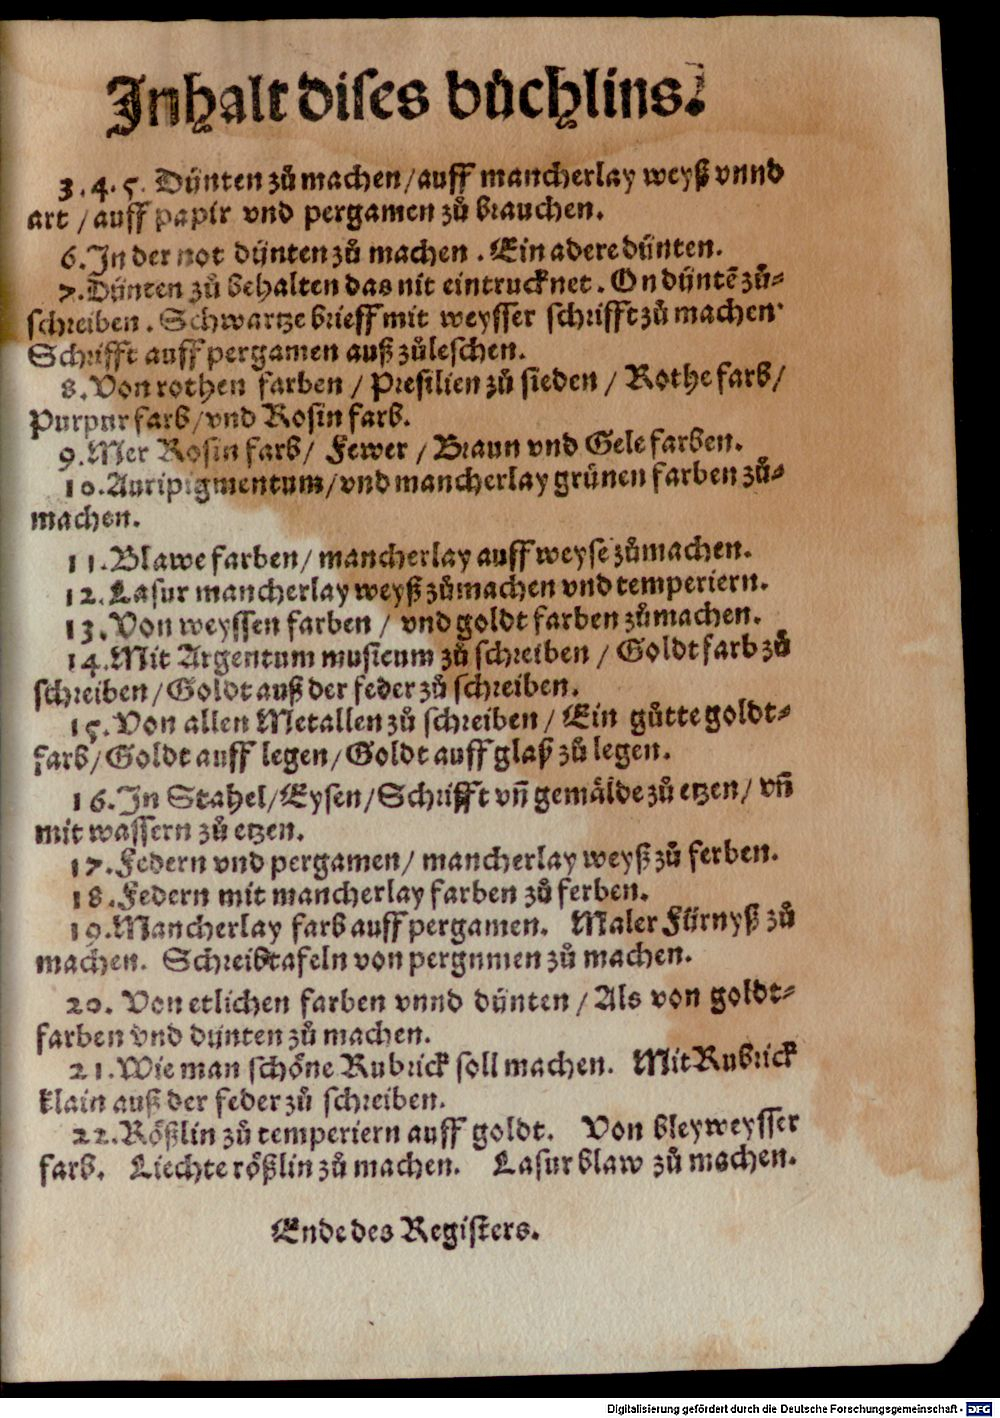 Inhalt diſes bůchlins.
3.4.5. Dÿnten zů machen/auff mancherlay weyß vnnd
art /auff papir vnd pergamen zů brauchen.
6.In der not dÿnten zů machen . Ein adere dünten.
7.Dÿnten zů behalten das nit eintrucknet. On dÿntē zů-
ſchreiben. Schwartze brieff mit weyſſer ſchrifft zů machen
Schrifft auff pergamen auß zůleſchen.
8.Von rothen farben / Preſilien zů ſieden / Rothe farb/
Purpur farb/vnd Roſin farb.
9.Mer Roſin farb/ Fewer / Braun vnd Gele farben.
10.Auripigmentum/vnd mancherlay grünen farben zů-
machen.
11.Blawe farben/ mancherlay auff weyſe zůmachen.
12.Laſur mancherlay weyß zůmachen vnd temperiern.
13.Von weyſſen farben / vnd goldt farben zůmachen.
14.Mit Argentum muſicum zů ſchreiben / Goldt farb zů
ſchreiben/Goldt auß der feder zů ſchreiben.
15.Von allen Metallen zů ſchreiben/ Ein gůtte goldt-
farb/Goldt auff legen/Goldt auff glaß zů legen.
16.In Stahel/Eyſen/Schrifft vñ gemälde zů etzen/ vñ
mit waſſern zů etzen.
17.Federn vnd pergamen/ mancherlay weyß zů ferben.
18.Federn mit mancherlay farben zů ferben.
19.Mancherlay farb auff pergamen. Maler Fürnyß zů
machen. Schreibtafeln von pergnmen zů machen.
20. Von etlichen farben vnnd dünten / Als von goldt-
farben vnd dÿnten zů machen.
21.Wie man ſchöne Rubrick ſoll machen. Mit Rubrick
klain auß der feder zů ſchreiben.
22.Rößlin zů temperiern auff goldt. Von bleyweyſſer
farb. Liechte rößlin zů machen. Laſur blaw zů machen.
Ende des Regiſters.
Digitalisierung gefördert durch die Deutsche Forschungsgemeinschaft - DFG